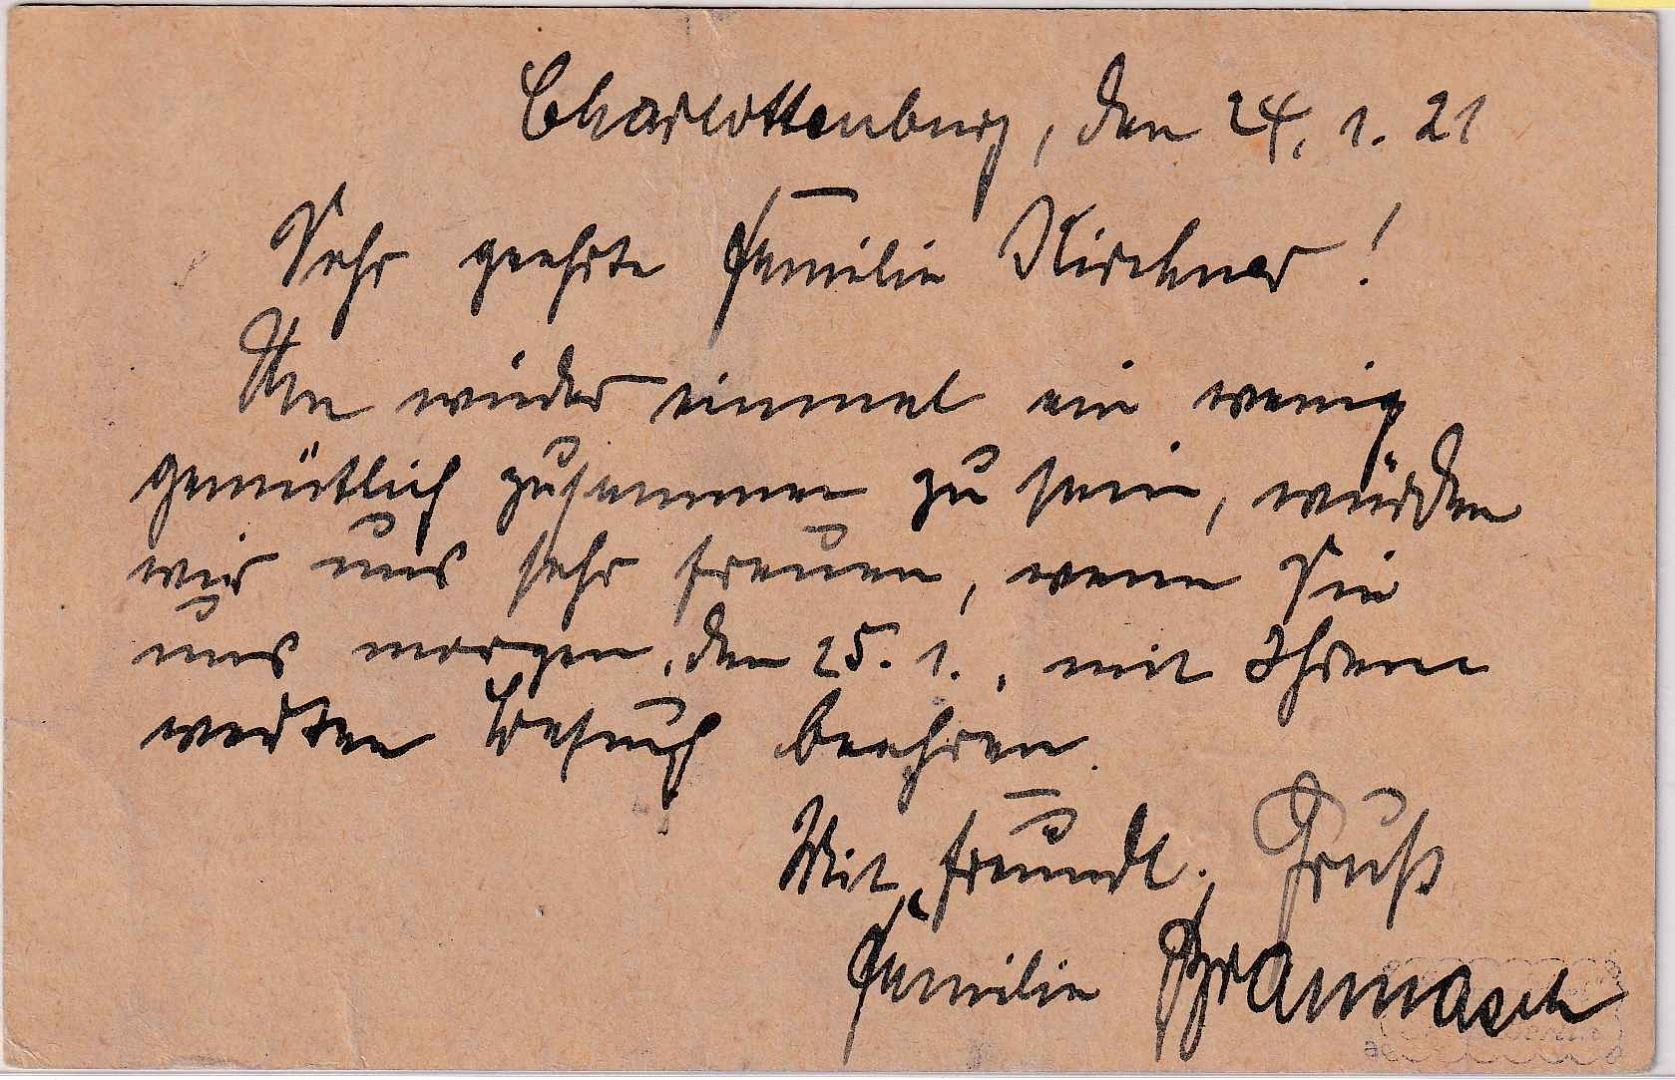 Charlottenburg, den 24. 1. 21
Sehr geehrte Familie Kirchner!
Um wieder einmal ein wenig
gemütlich zusammen zu sein, würden
wir uns sehr freuen, wenn Sie
uns morgen, den 25. 1., mit Ihrem
werten Besuch beehren.
Mit freundl. Gruß
Familie